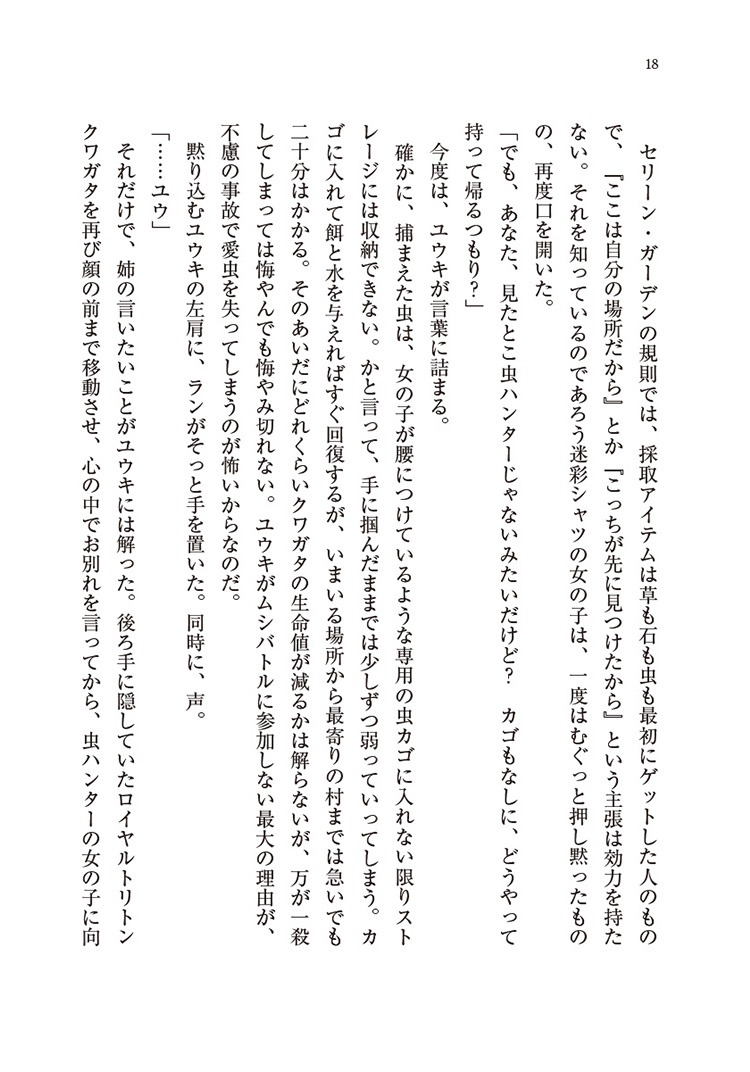 18
　セリーン・ガーデンの規則では、採取アイテムは草も石も虫も最初にゲットした人のもの
で、『ここは自分の場所だから』とか『こっちが先に見つけたから』という主張は効力を持た
ない。それを知っているのであろう迷彩シャツの女の子は、一度はむぐっと押し黙ったもの
の、再度口を開いた。
「でも、あなた、見たとこ虫ハンターじゃないみたいだけど？　カゴもなしに、どうやって
持って帰るつもり？」
　今度は、ユウキが言葉に詰まる。
　確かに、捕まえた虫は、女の子が腰につけているような専用の虫カゴに入れない限りスト
レージには収納できない。かと言って、手に掴んだままでは少しずつ弱っていってしまう。カ
ゴに入れて餌と水を与えればすぐ回復するが、いまいる場所から最寄りの村までは急いでも
二十分はかかる。そのあいだにどれくらいクワガタの生命値が減るかは解らないが、万が一殺
してしまっては悔やんでも悔やみ切れない。ユウキがムシバトルに参加しない最大の理由が、
不慮の事故で愛虫を失ってしまうのが怖いからなのだ。
　黙り込むユウキの左肩に、ランがそっと手を置いた。同時に、声。
「……ユウ」
　それだけで、姉の言いたいことがユウキには解った。後ろ手に隠していたロイヤルトリトン
クワガタを再び顔の前まで移動させ、心の中でお別れを言ってから、虫ハンターの女の子に向